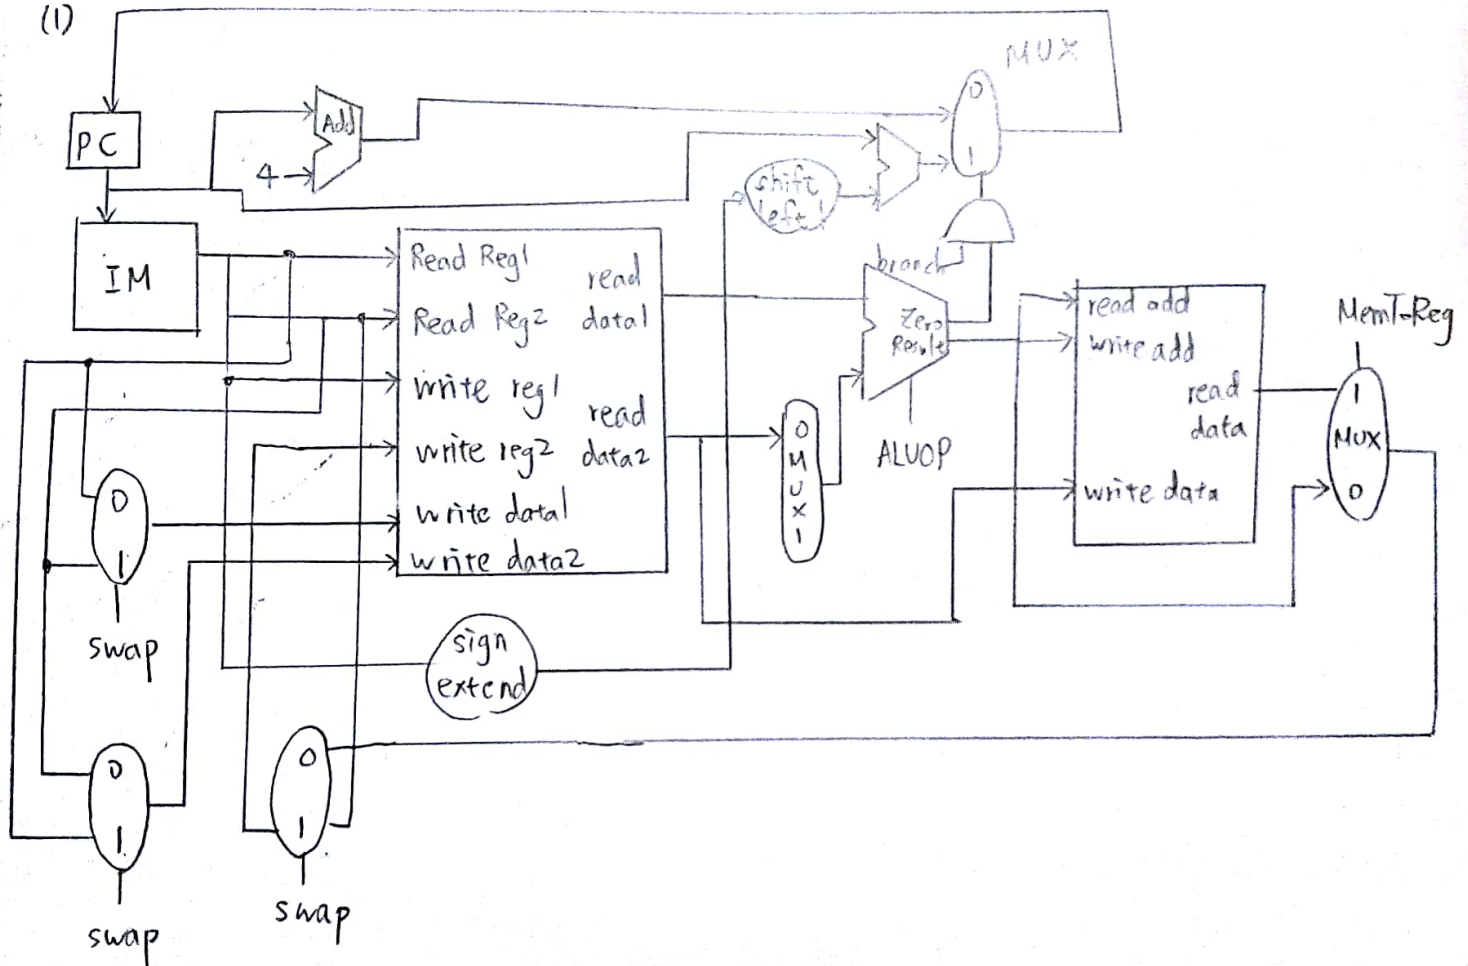 (1)
MUX
PC
Add
4
0
1
shift
left 1
IM
branch
Read Reg1
read
data1
Read Reg2
write reg1
read
data2
write reg2
write data1
write data2
Zero
Result
ALUOP
0
M
U
X
1
read add
write add
read
data
write data
MemToReg
1
MUX
0
0
1
swap
sign
extend
0
1
swap
0
1
swap